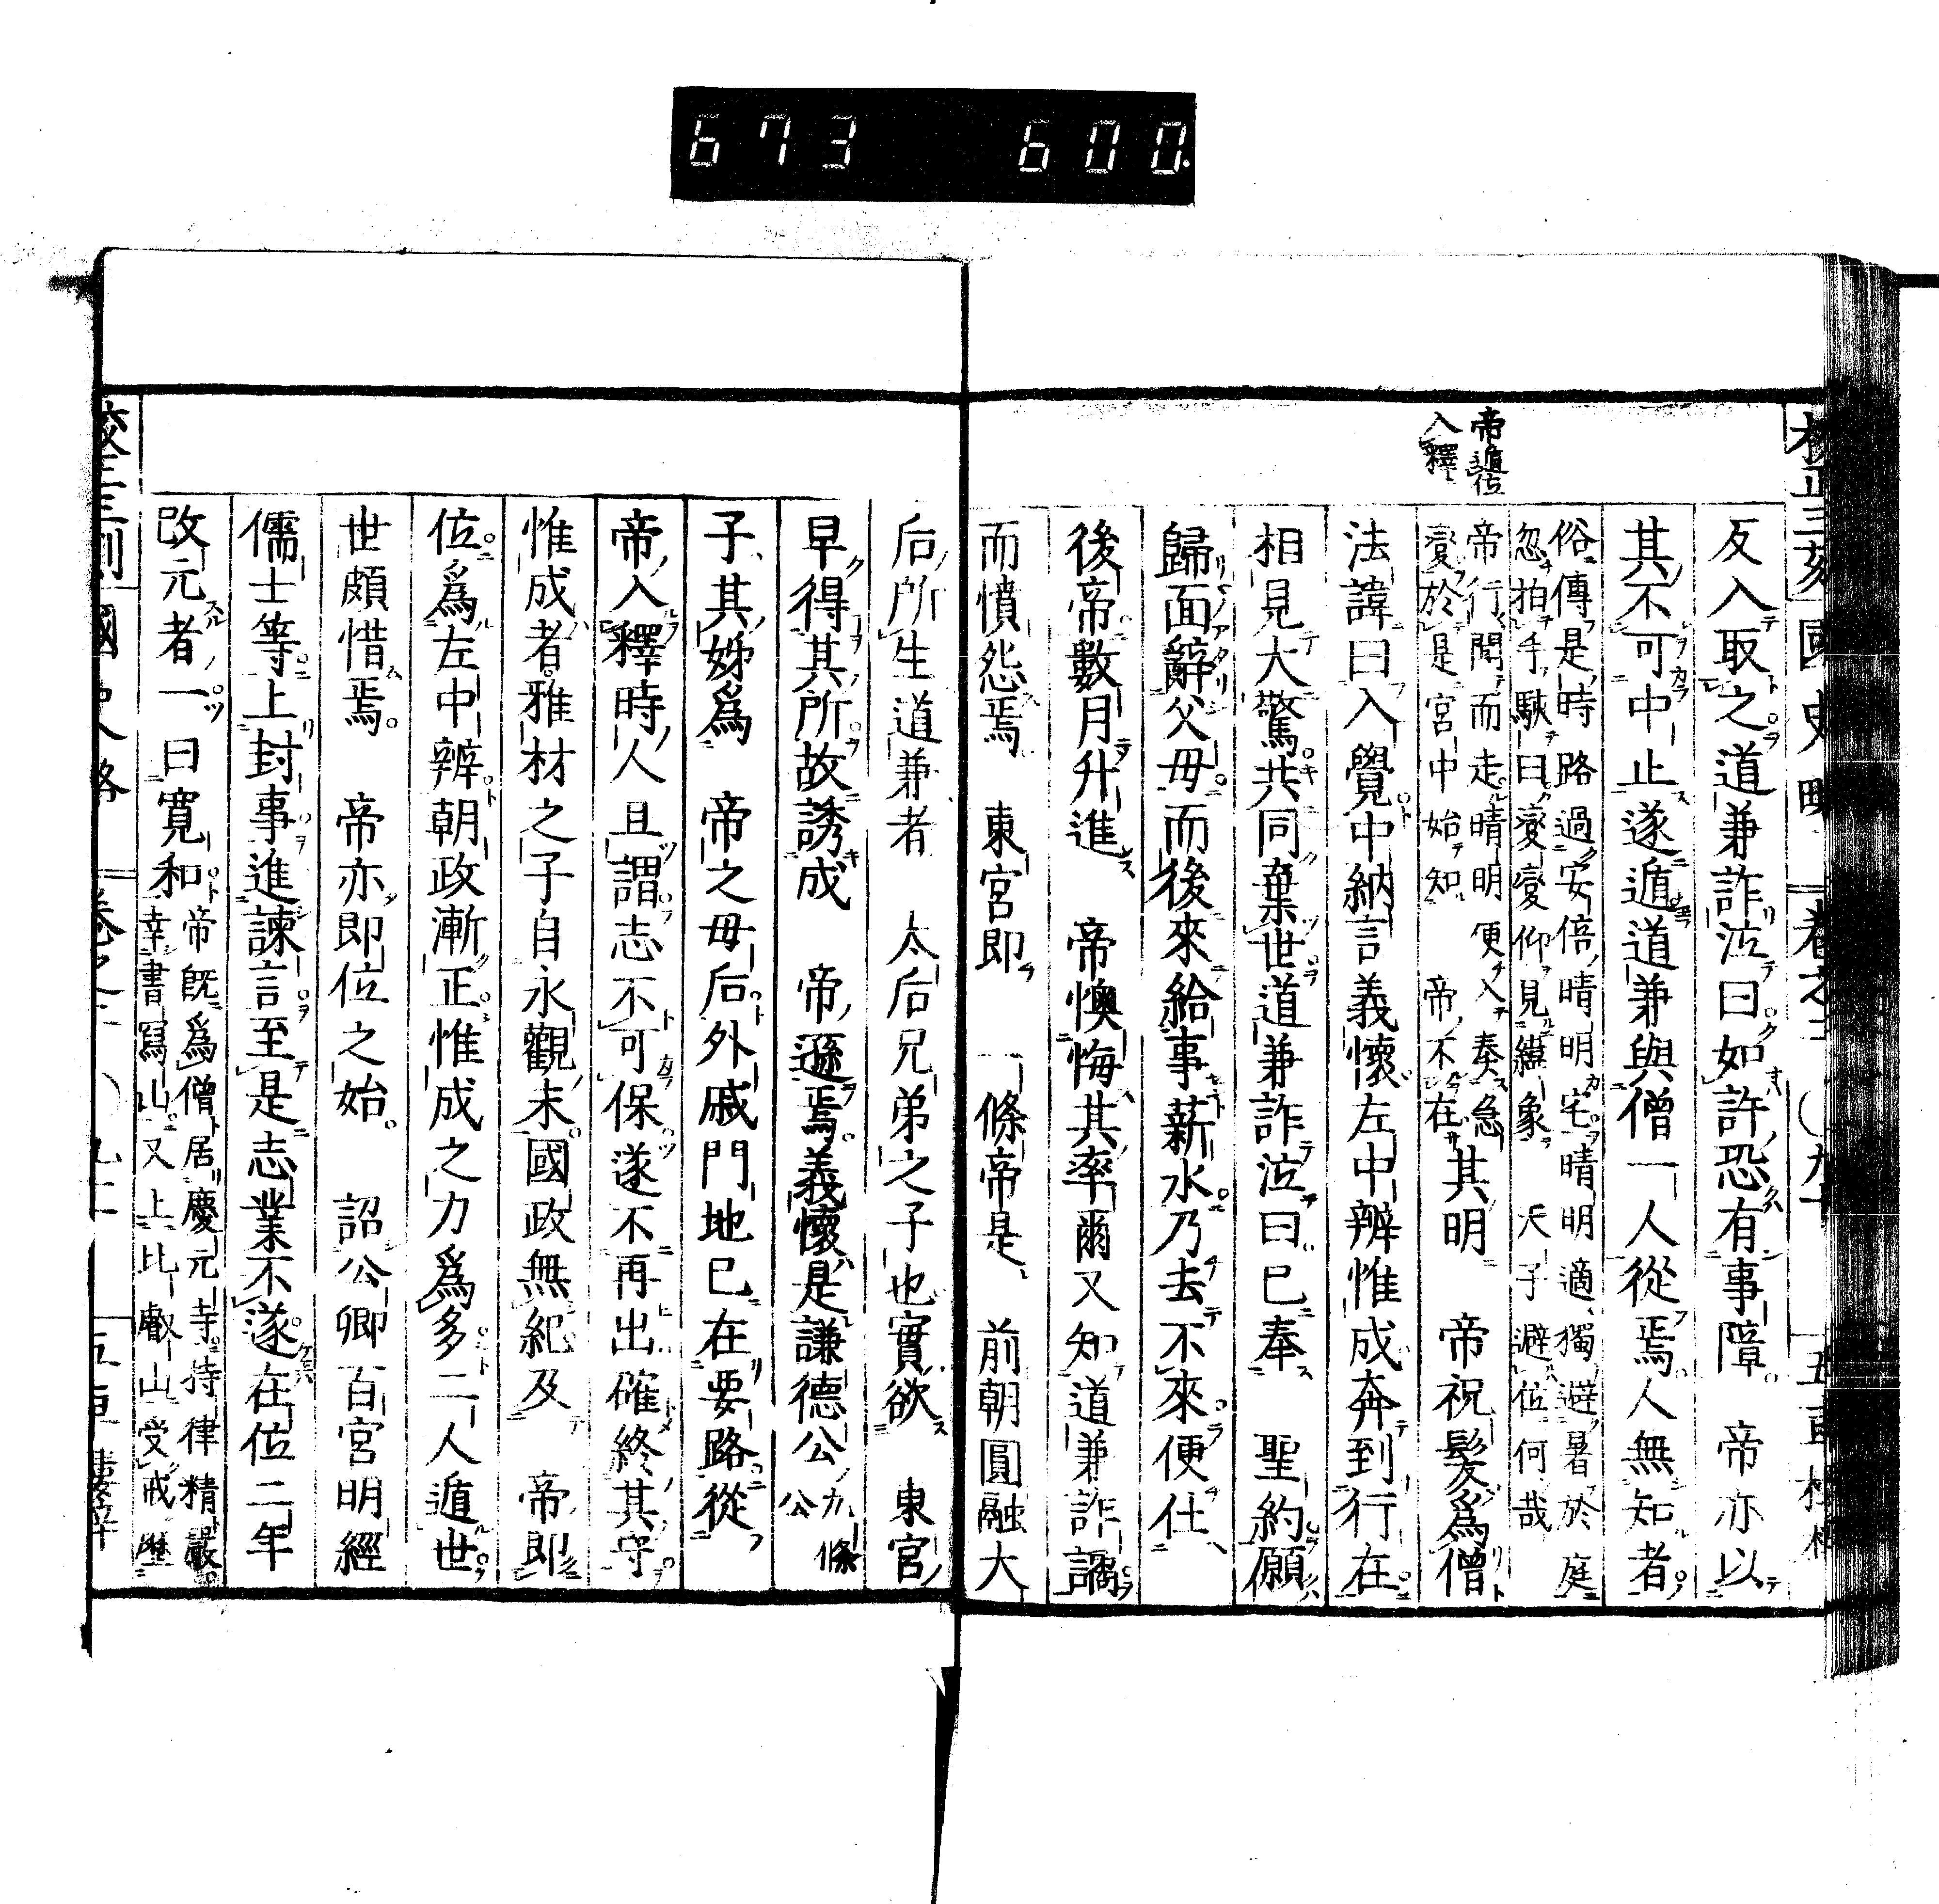 673 600.
帝遁位
入釋
反入取之道兼詐泣曰如許恐有事障 帝亦以
其不可中止遂遁道兼與僧一人從焉人無知者
俗傳是時路過安倍晴明宅晴明適獨避暑於庭
忽拍手駃曰變變仰見纀象天子避位何哉
帝行聞而走晴明便入奏急
變於是宮中始知 帝不在
其明 帝祝髮爲僧
法諱曰入覺中納言義懷左中辨惟成奔到行在
相見大驚共同棄世道兼詐泣曰已奉 聖約願
歸面辭父母而後來給事薪水乃去不來便仕
後帝數月升進 帝懊悔其率爾又知道兼詐譎
而憤怨焉 東宮即 一條帝是 前朝圓融大
后所生道兼者 太后兄弟之子也實欲 東宮
早得其所故誘成 帝遜焉義懷是謙德公九條公
子其姊爲 帝之母后外戚門地已在要路從
帝入釋時人且謂志不可保遂不再出確終其守
惟成者雅材之子自永觀末國政無紀及 帝即
位爲左中辨朝政漸正惟成之力爲多二人遁世
世頗惜焉 帝亦即位之始 詔公卿百官明經
儒士等上封事進諫言至是志業不遂在位二年
改元者一曰寬和
帝既爲僧居慶元寺持律精嚴
幸書寫山又上比叡山受戒歷